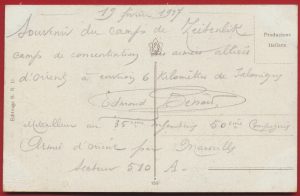 19 février 1917
Souvenir du camps de Zeitenlik
camps de concentration armées alliées
d'Orient à environ 6 Kilomètres de Salonique
Edmond
Mitrailleur au 35ème infanterie 50ème Compagnie
Armée d'orient par Marseille
Secteur 510 A
Produzione
Italiana